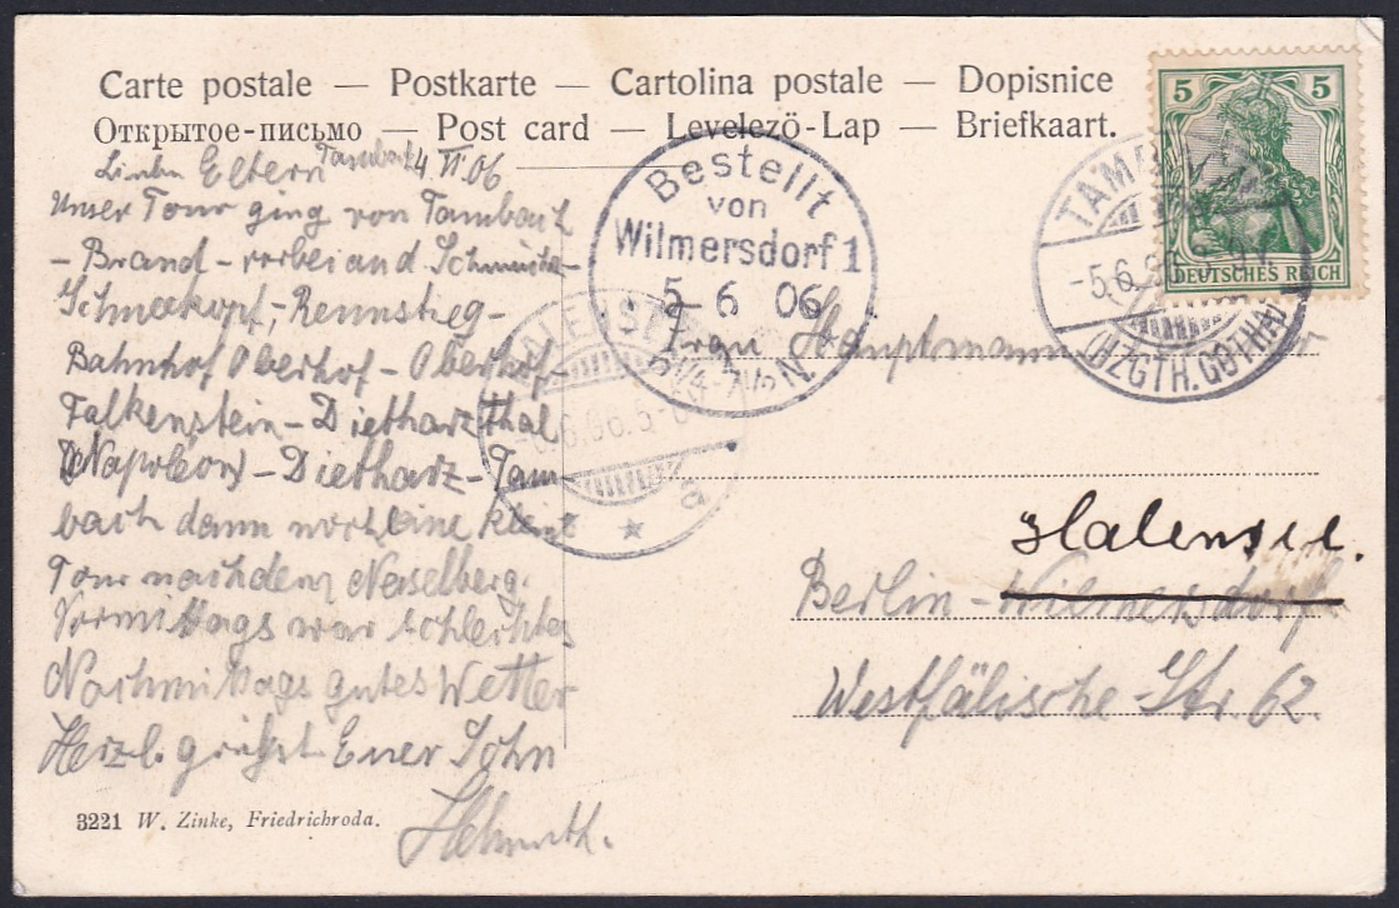 Carte postale — Postkarte — Cartolina postale — Dopisnice
Открытое-письмо — Post card — Levelező-Lap — Briefkaart.
Tambach 4 VI.06
Liebe Eltern
Unser Tour ging von Tambach
- Brand - vorbei and Schmücke -
Schneekopf, - Rennstieg -
Bahnhof Oberhof - Oberhof -
Falkenstein - Dietharzthal
(Napoleon) - Dietharz - Tam-
bach dann noch eine kleine
Tour nach dem
Vormittags war schlechtes
Nachmittags gutes Wetter
Herzl. grüsst Euer Sohn
Helmuth.
3221 W. Zinke, Friedrichroda.
Bestellt
von
Wilmersdorf 1
5 6 06
5 1/4-7 1/2 N.
HALENSEE
6.06.5-6
5 5
DEUTSCHES REICH
TAMBACH
-5.6.06.8-9V.
(HZGTH. GOTHA)
Frau Hauptmann
Halensee.
Berlin - Wilmersdorf
Westfälische Str. 62.